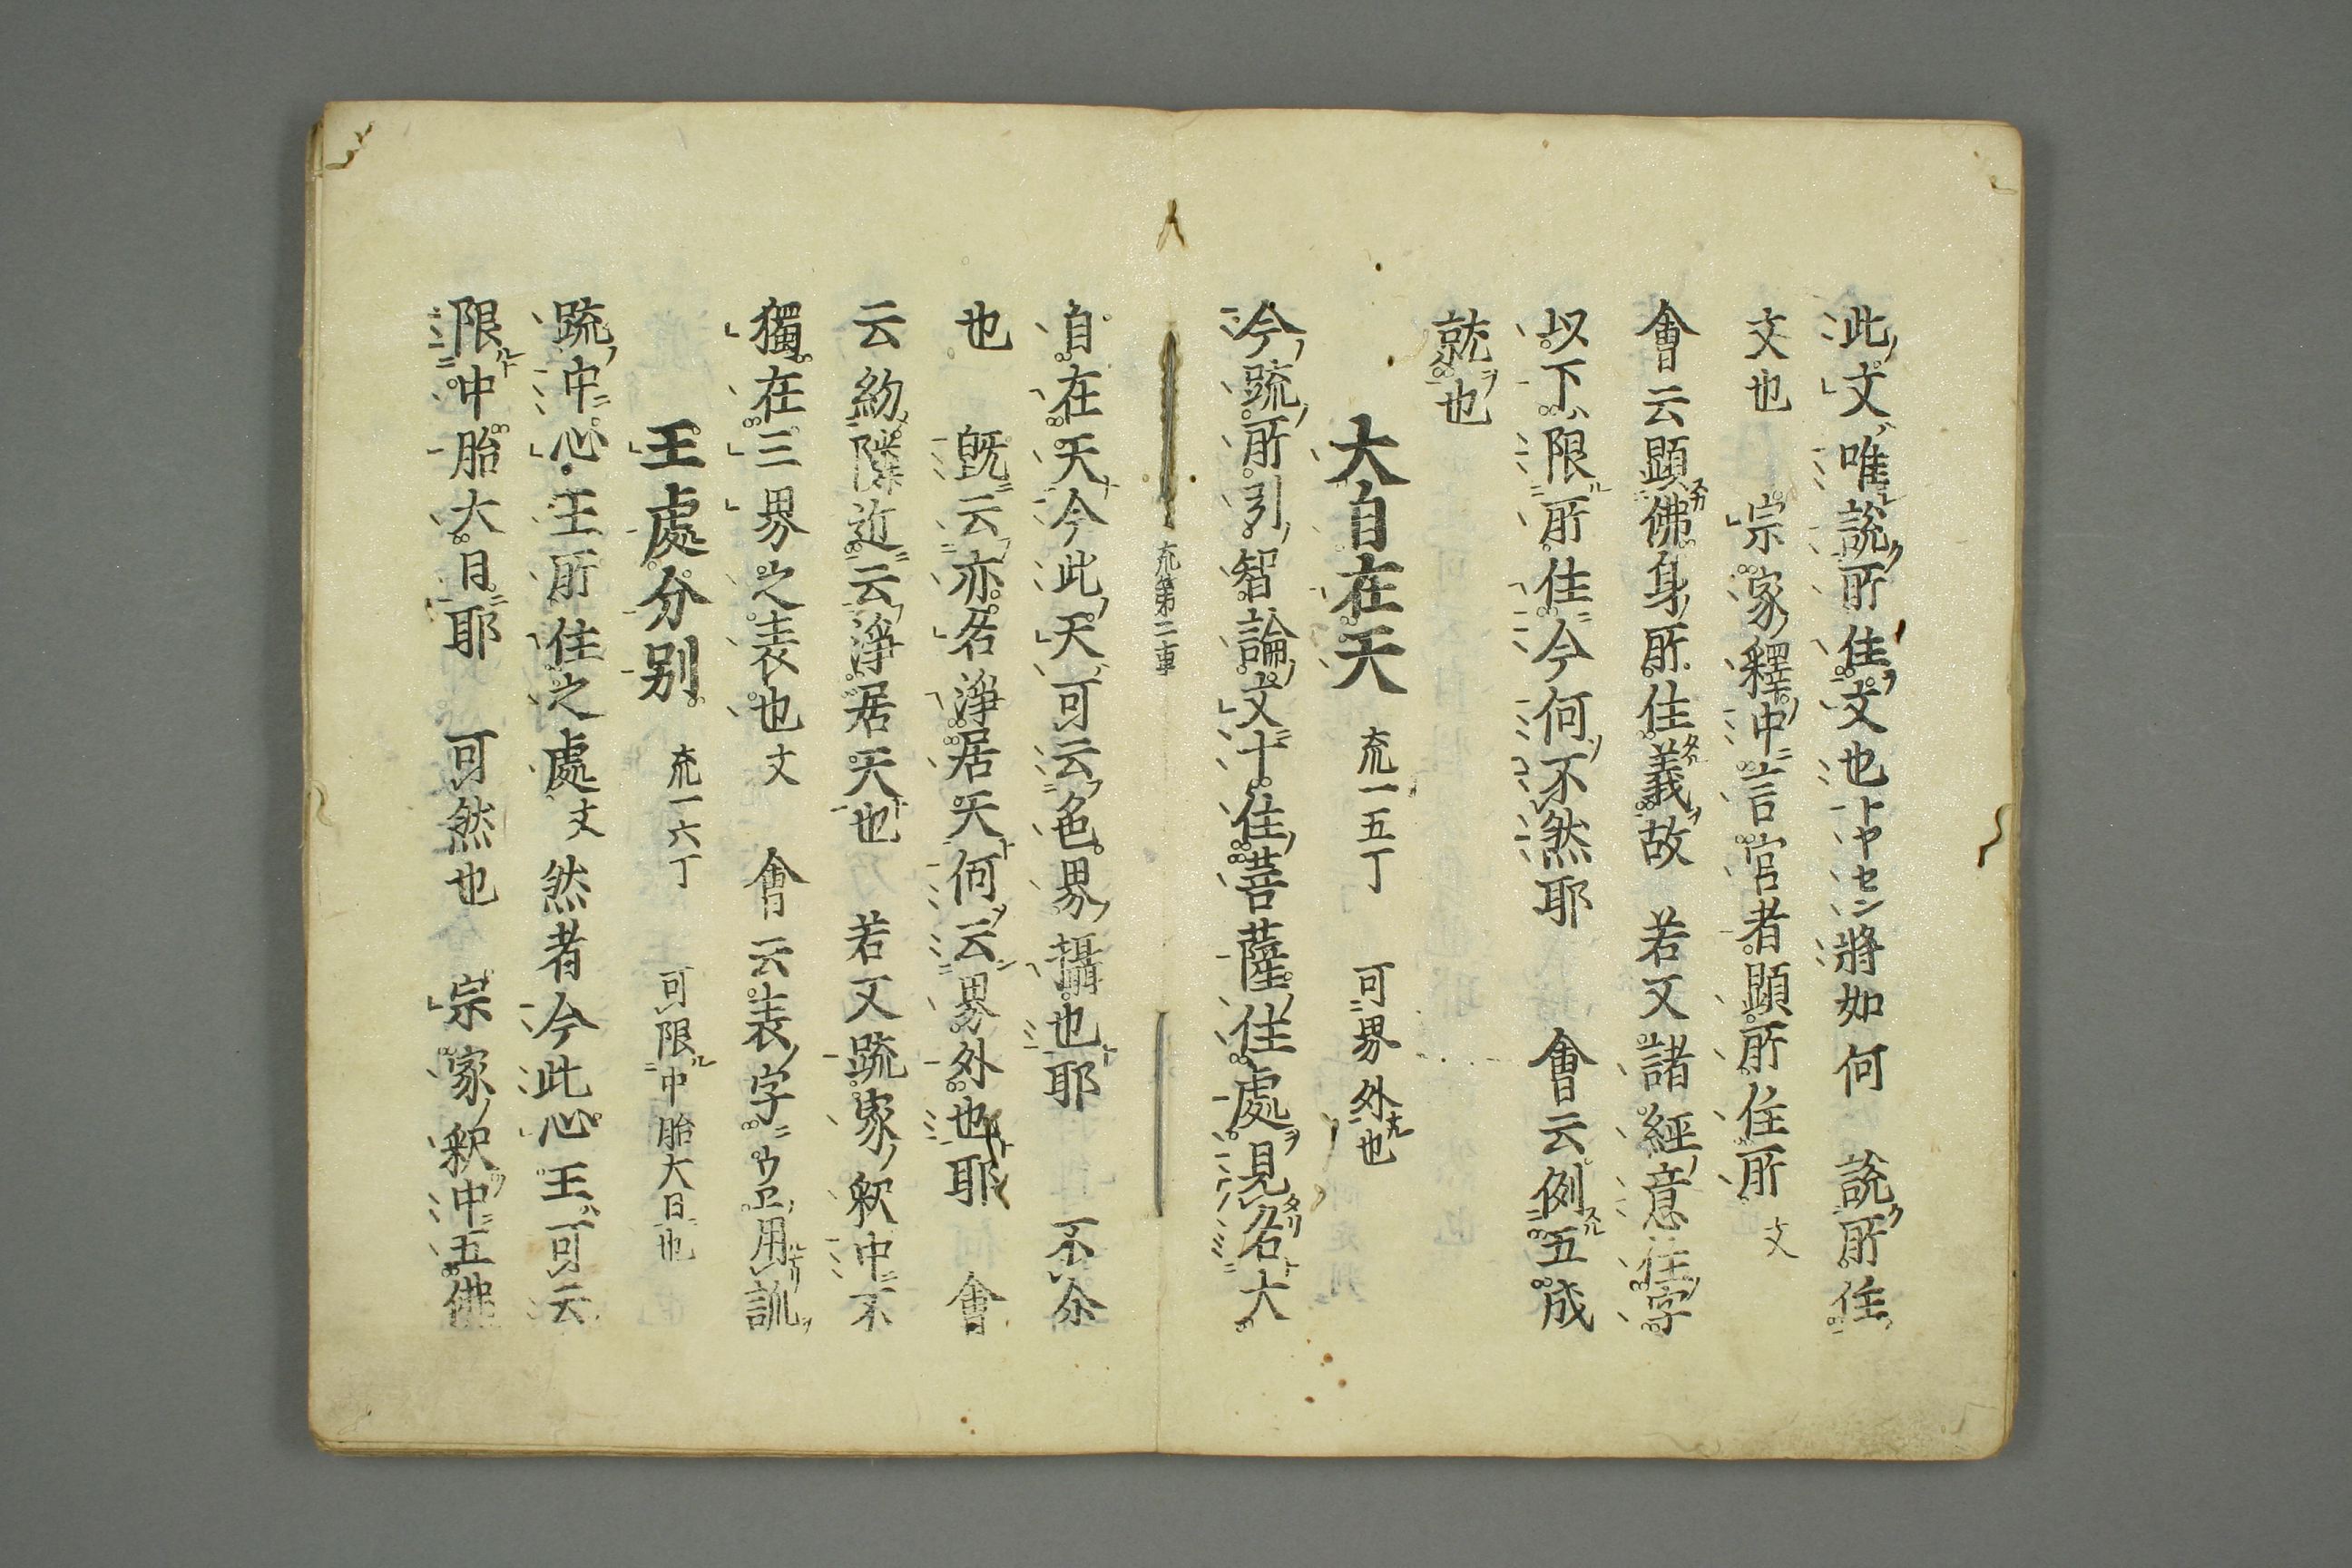 此文唯説所住文也トヤセン將如何　説所住
文也　宗家釋中言官者顯所住所文
會云顕佛身所住義故　若又諸經意住字
以下限所住今何不然耶　會云例五成
就也
大自在天　疏一五丁　可界外也
今疏所引智論文十住菩薩住處見名大
疏第二車
自在天今此天可云色界攝也耶　不尒
也　既云亦名淨居天何云界外也耶　會
云約隣近云淨居天也　若又疏家釈中不
獨在三界之表也文　會云表字ウヱ用訓
王處分別　疏一六丁　可限中胎大日也
疏中心王所住之處文然者今此心王可云
限中胎大日耶　可然也　宗家釈中五佛